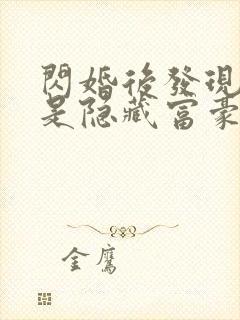 閃婚後發現
是隐藏富豪
金鹰